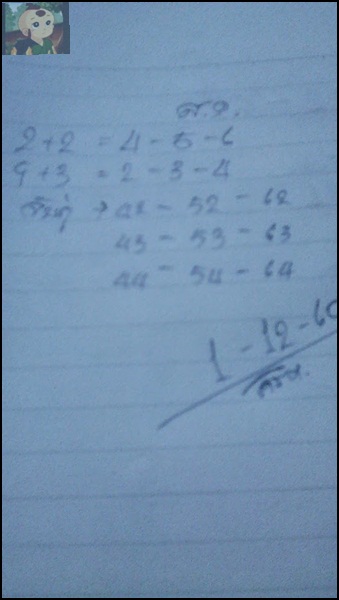 ส.ว.
2+2 = 4-5-6
9+3 = 2-3-4
→ 42 - 52 - 62
43 - 53 - 63
44 - 54 - 64
1-12-60